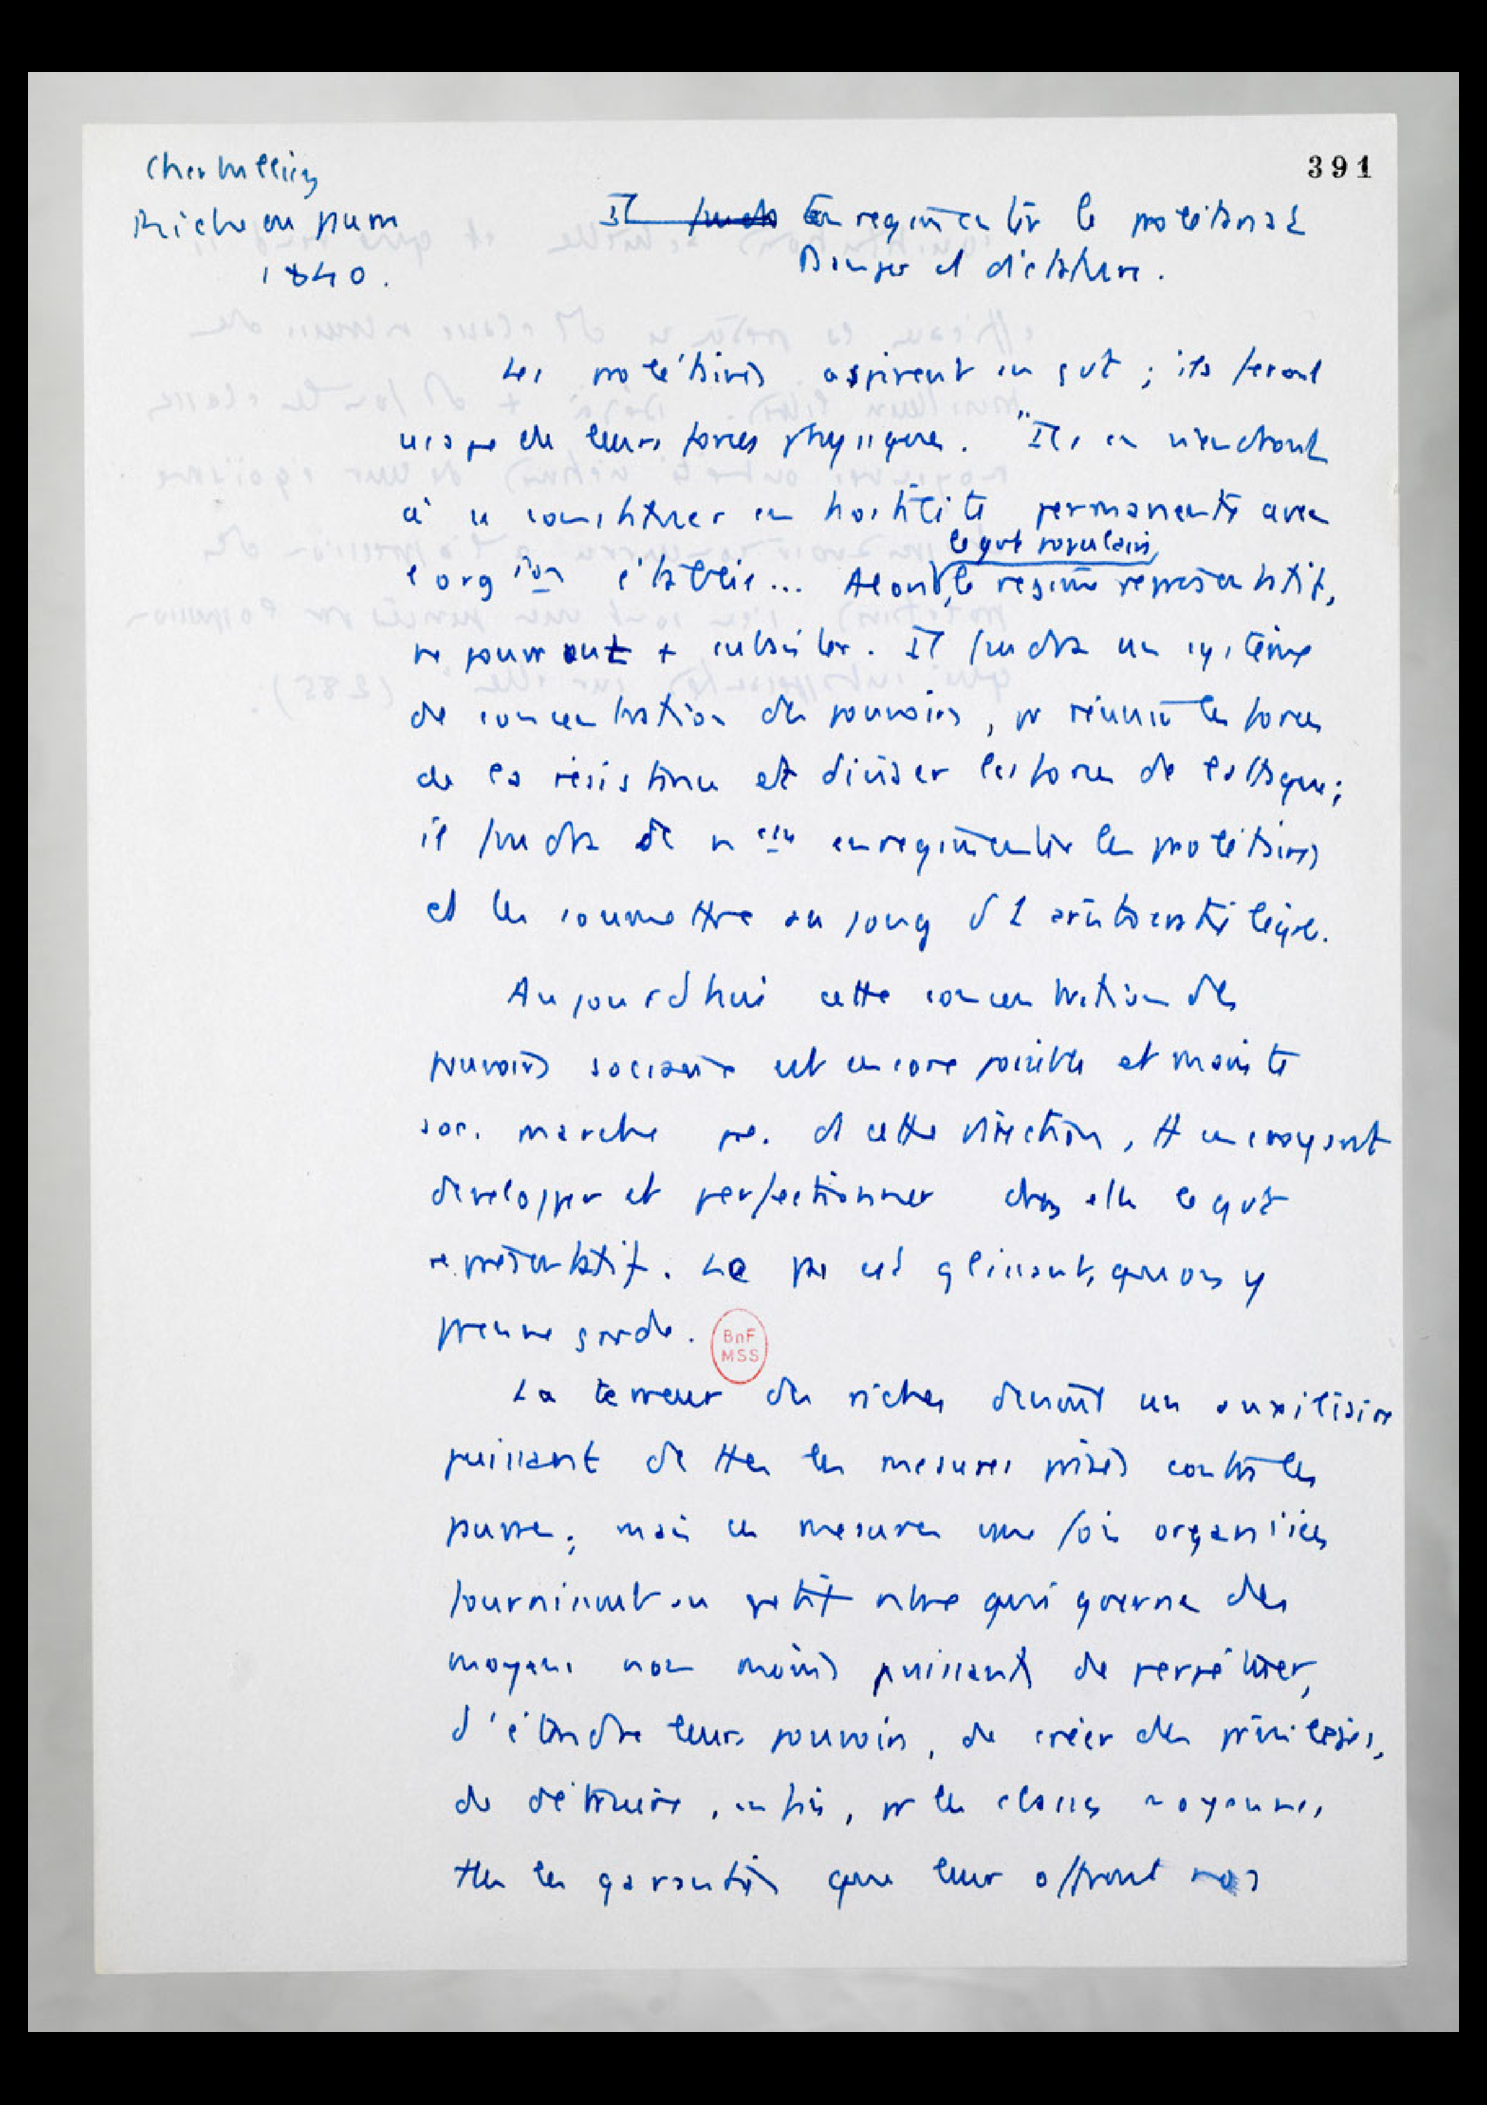 391
Cherbuliez
Riche ou pauvre
1840.
Il faudra Enregimenter le prolétariat
Danger d dictature.
Les prolétaires aspirent au gvt ; ils feront
usage de leurs forces physiques. "Ils en viendront
à se constituer en hostilité permanente avec
l'org ion établie... Alors, le régime représentatif,
le gvt populaire,
ne pourront + subsister. Il faudra un système
de concentration des pouvoirs, pr réunir les forces
de la résistance et diviser les forces de l'attaque ;
il faudra de n enregimenter les prolétaires
et les soumettre au joug d 1 aristocratie légale.
Aujourd'hui cette concentration des
pouvoirs sociaux est encore possible et mainte
soc. marche ds cette direction, tt en croyant
développer et perfectionner chez elle le gvt
représentatif. Le pas est glissant, qu'on y
prenne garde.
BnF
MSS
La terreur des riches devient un auxiliaire
puissant de ttes les mesures prises contre les
pauvres ; mais ces mesures une fois organisées
fournissent au petit nbre qui gouverne des
moyens non moins puissants de perpétuer,
d'étendre leurs pouvoirs, de créer des privilèges,
de détruire, enfin, pr les classes moyennes,
ttes les garanties que leur offrent nos